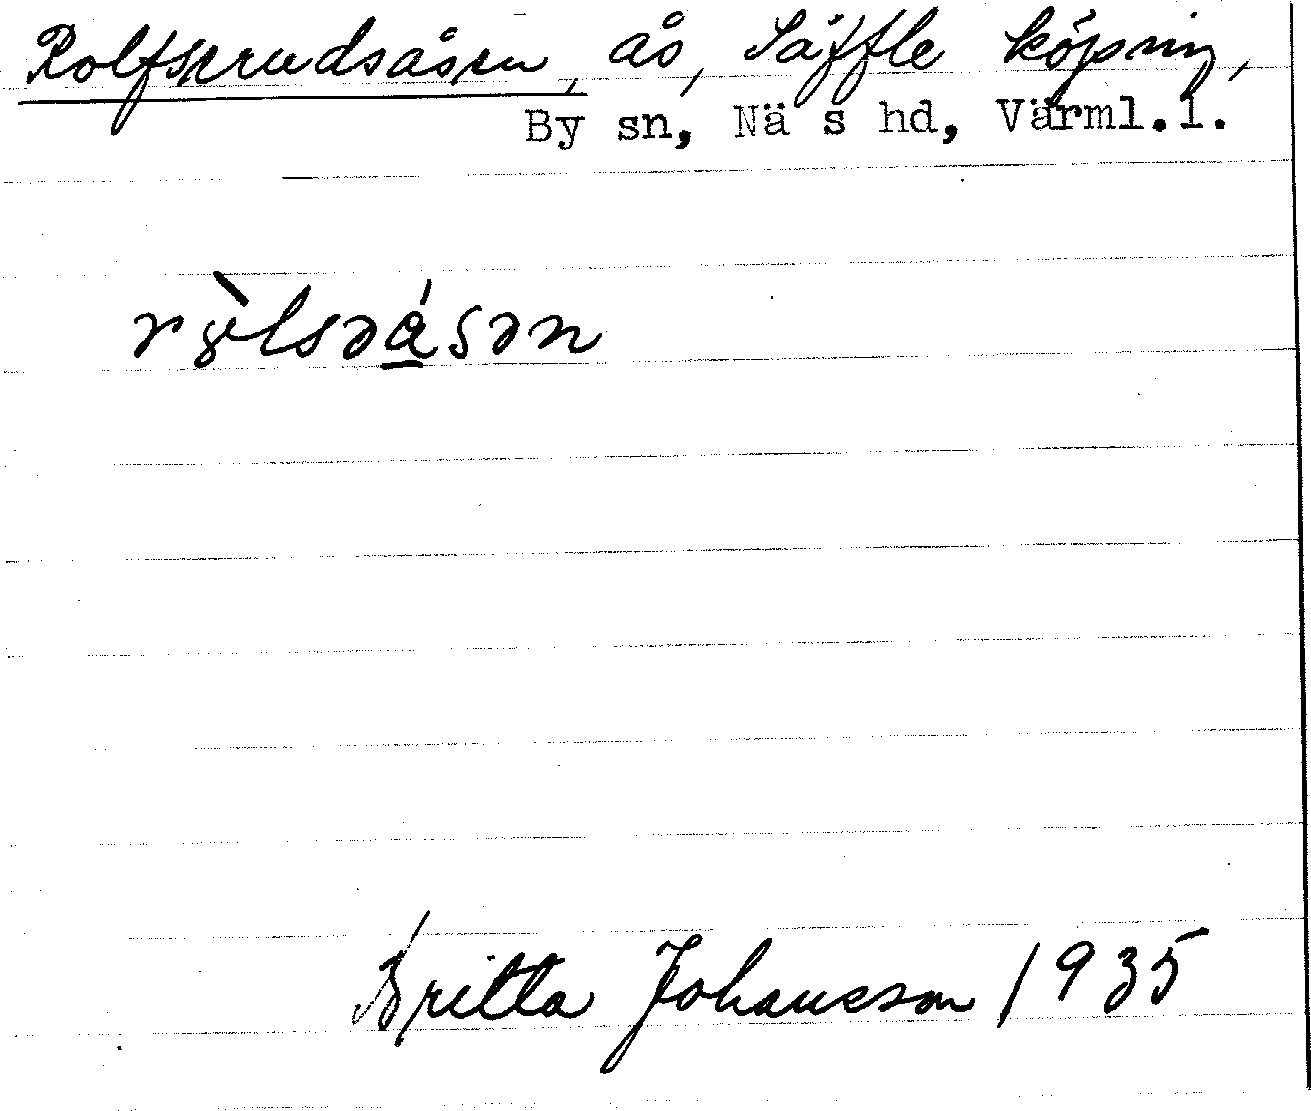 Rolfserudsåsen, ås, Säffle köping,
By sn, Nä s hd, Värml.l.
rɤ̀lsəá̲sən
Britta Johansson 1935